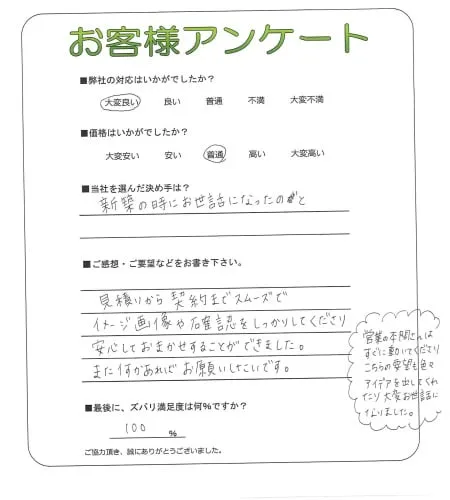 お客様アンケート
■弊社の対応はいかがでしたか？
大変良い 良い 普通 不満 大変不満
■価格はいかがでしたか？
大変安い 安い 普通 高い 大変高い
■当社を選んだ決め手は？
新築の時にお世話になったのと
■ご感想・ご要望などをお書き下さい。
見積りから契約までスムーズで
イメージ画像や確認をしっかりしてくださり
安心しておまかせすることができました。
また何かあればお願いしたいです。
営業の本間さんは
すぐに動いてくださり
こちらの要望も色々
アイデアを出してくれ
たり大変お世話に
なりました。
■最後に、ズバリ満足度は何%ですか？
100 %
ご協力頂き、誠にありがとうございました。